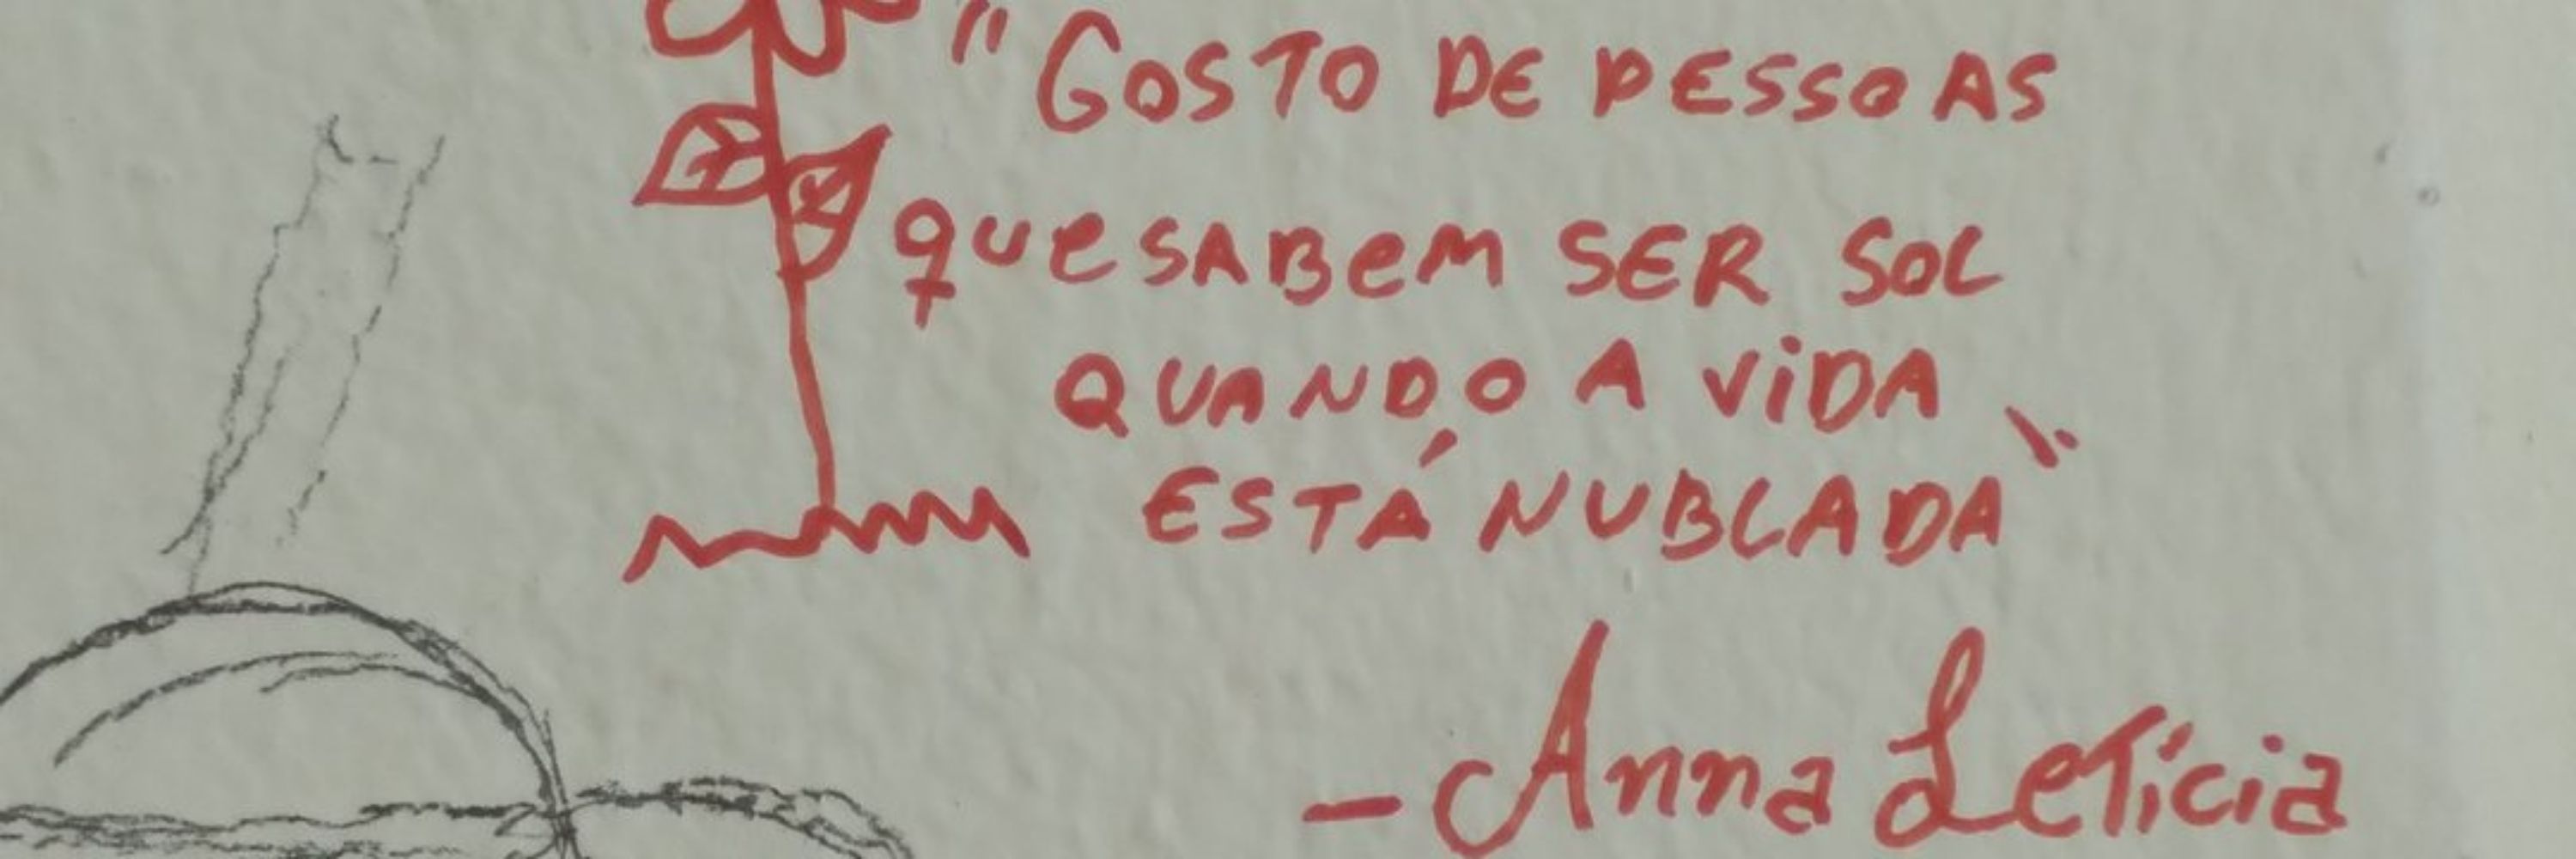 "GOSTO DE PESSOAS
que SABEM SER SOL
QUANDO A ViDA
ESTÁ NUBLADA"
- Anna Letícia